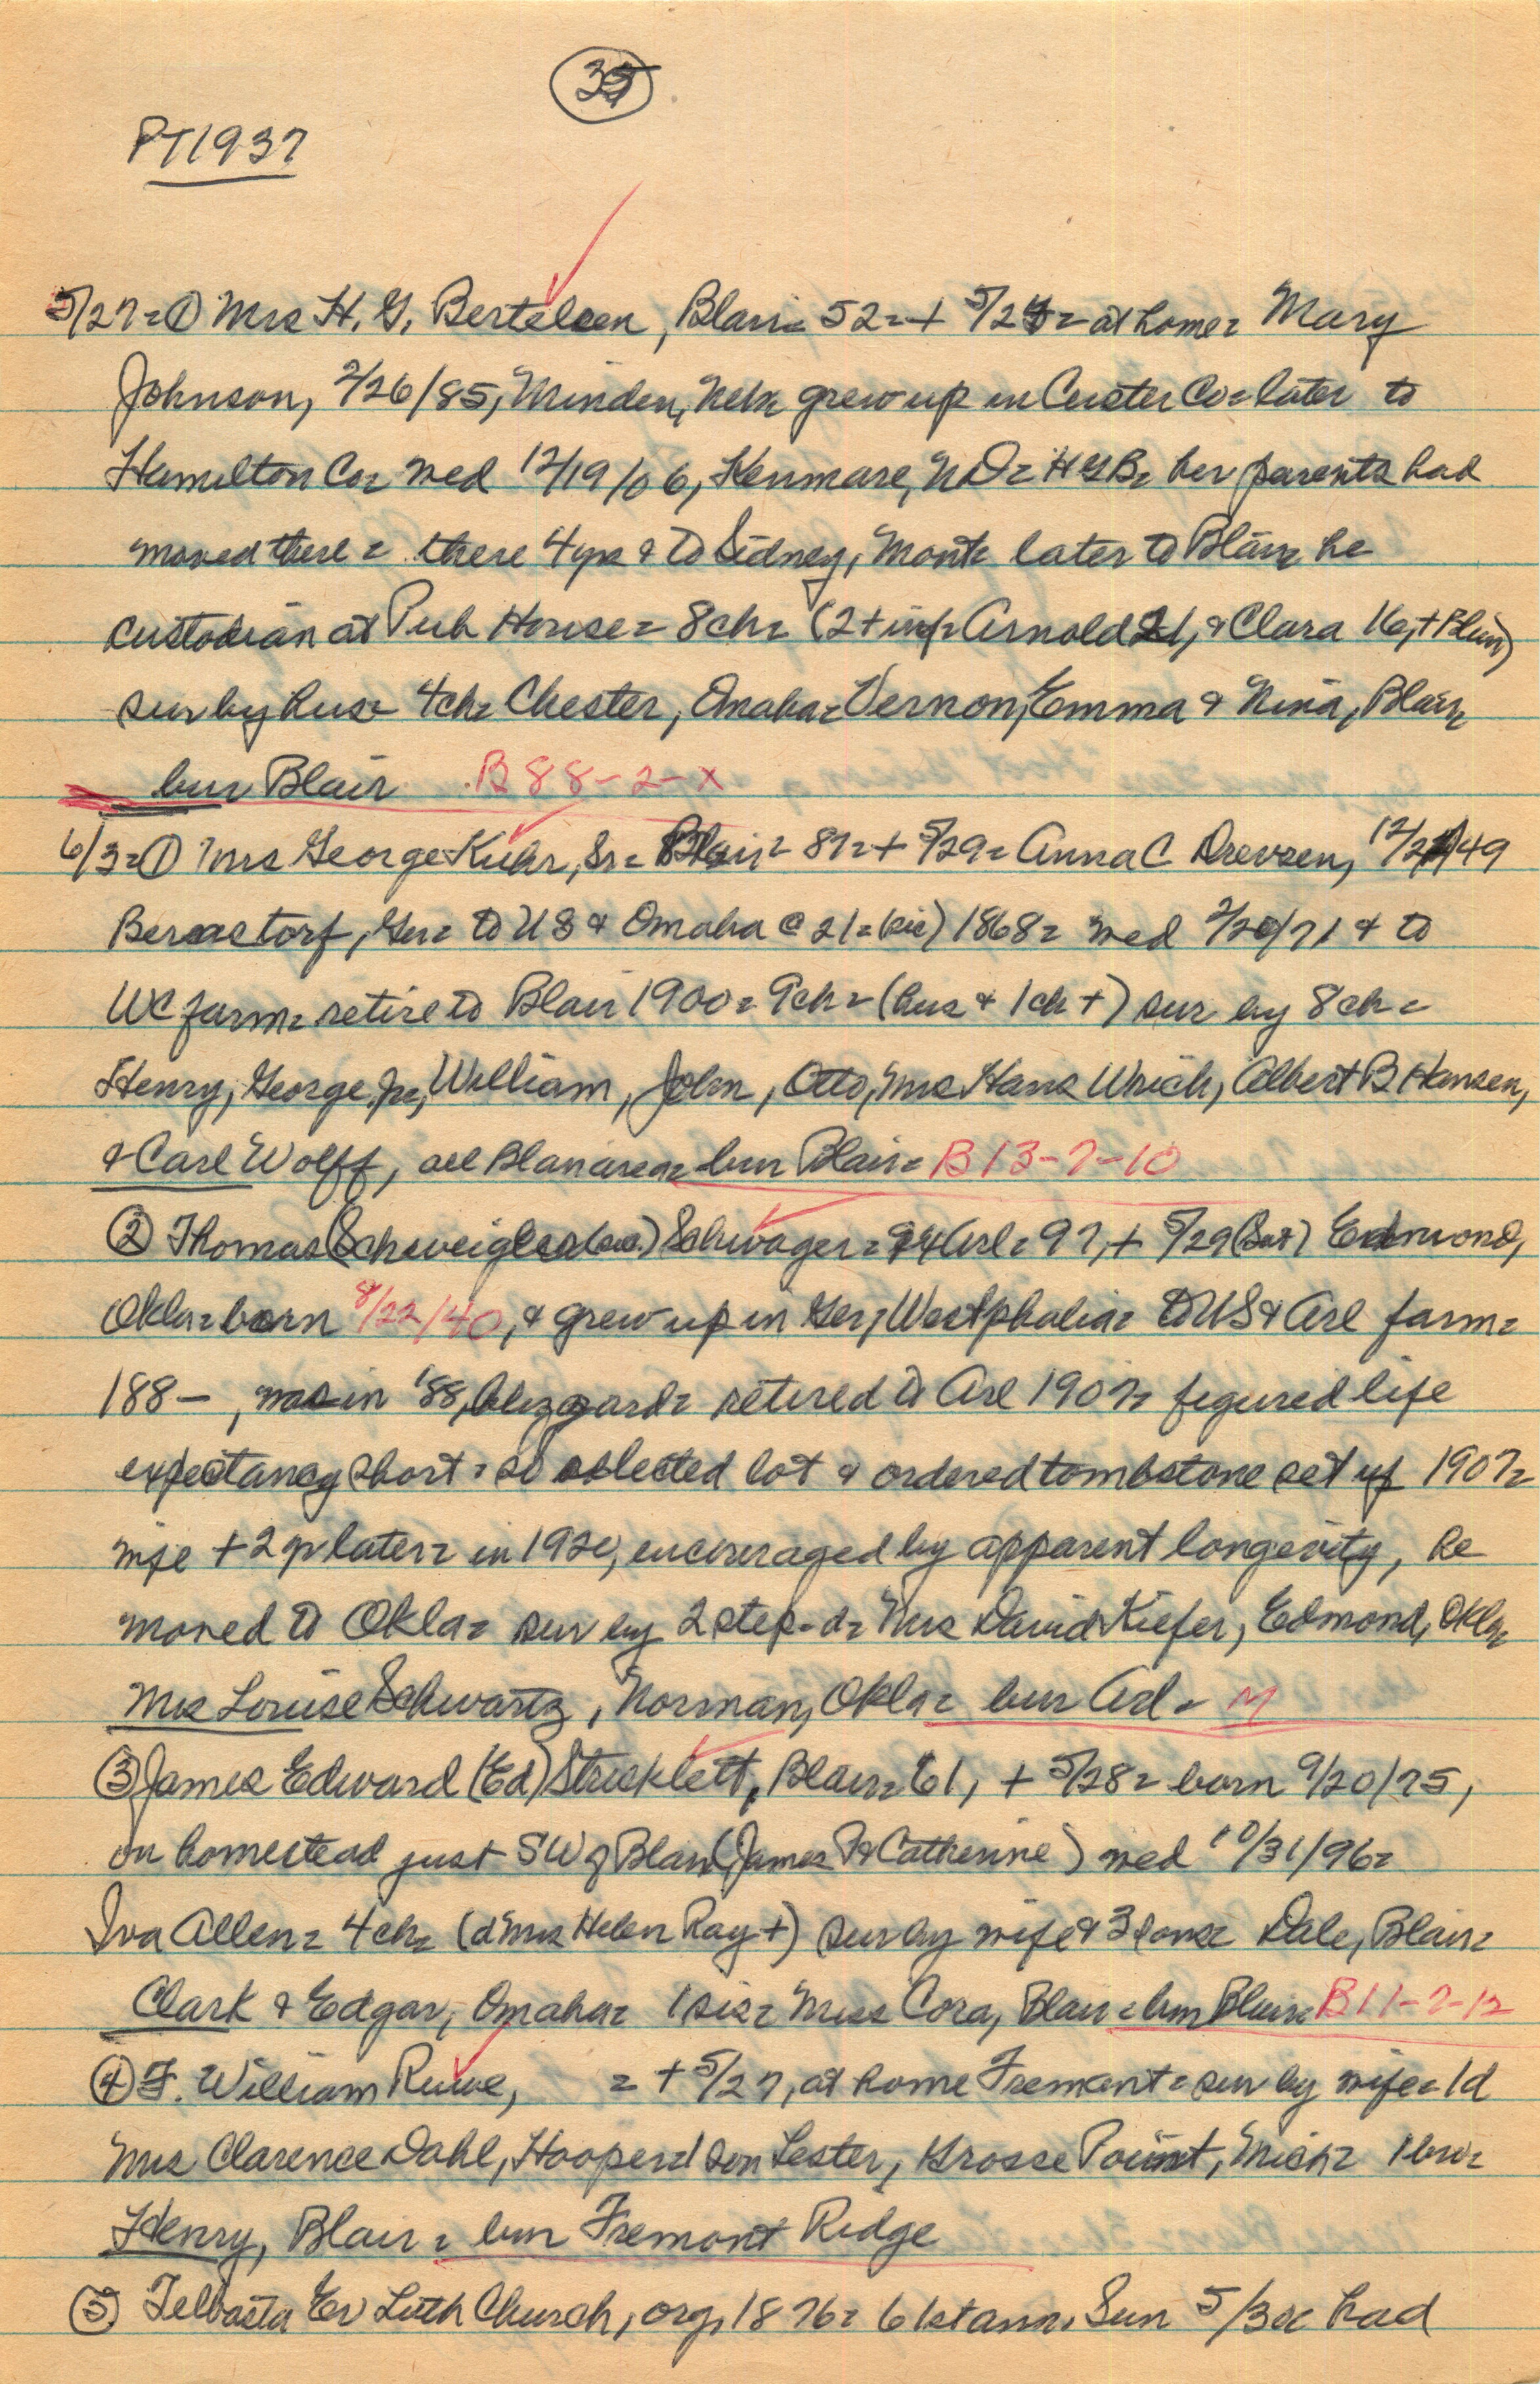 35
PT1937
5/27=① Mrs H. G. Bertelsen, Blair= 52=+ 5/25= at home= Mary
Johnson, 2/26/85, Minden, Neb= grew up in Custer Co= later to
Hamilton Co= wed 12/19/06, Kenmare, ND= HGB= her parents had
moved there = there 4 yrs & to Sidney, Mont= later to Blair= he
custodian at Pub House= 8ch= (2+inf= Arnold 21, & Clara 16,+Blair)
sur by hus= 4ch= Chester, Omaha= Vernon, Emma & Nina, Blair=
bur Blair B88-2-X
6/3=① Mrs George Kuhr, Sr= Blair= 87=+ 5/29= Anna C Drevsen, 12/21/49
Ger= to US & Omaha @ 21=(sic) 1868= wed 2/20/71 & to
WC farm= retire to Blair 1900= 9ch= (hus & 1ch +) sur by 8ch=
Henry, George, Jr, William, John, Otto, Mrs Hans Wrich, Albert B Hansen,
& Carl Wolff, all Blair area= bur Blair= B13-7-10
② Thomas Schwager= Arl= 97,+ 5/29(Sat) Edmond,
Okla= born 8/22/40, & grew up in Ger, Westphalia= to US & Arl farm=
188–, was in '88, blizzard= retired to Arl 1907= figured life
expectancy short= so selected lot & ordered tombstone set up 1907=
wife + 2 yr later= in 1920, encouraged by apparent longevity, he
moved to Okla= sur by 2 step-d= Mrs David Kiefer, Edmond, Okla=
Mrs Louise Schwartz, Norman, Okla= bur Arl= M
③ James Edward (Ed) Stricklett, Blair= 61, + 5/28= born 9/20/75,
on homestead just SW of Blair (James P & Catherine) wed 10/31/96=
Iva Allen= 4ch= (d Mrs Helen Ray+) sur by wife & 3 sons= Dale, Blair=
Clark & Edgar, Omaha= 1 sis= Miss Cora, Blair= bur Blair= B11-7-12
④ F. William Ruwe, =+ 5/27, at home Fremont= sur by wife= 1d
Mrs Clarence Dahl, Hooper= 1 son Lester, Grosse Point, Mich= 1 bro=
Henry, Blair= bur Fremont Ridge
⑤ Telbasta Ev Luth Church, org, 1876= 61st ann. Sun 5/30= had